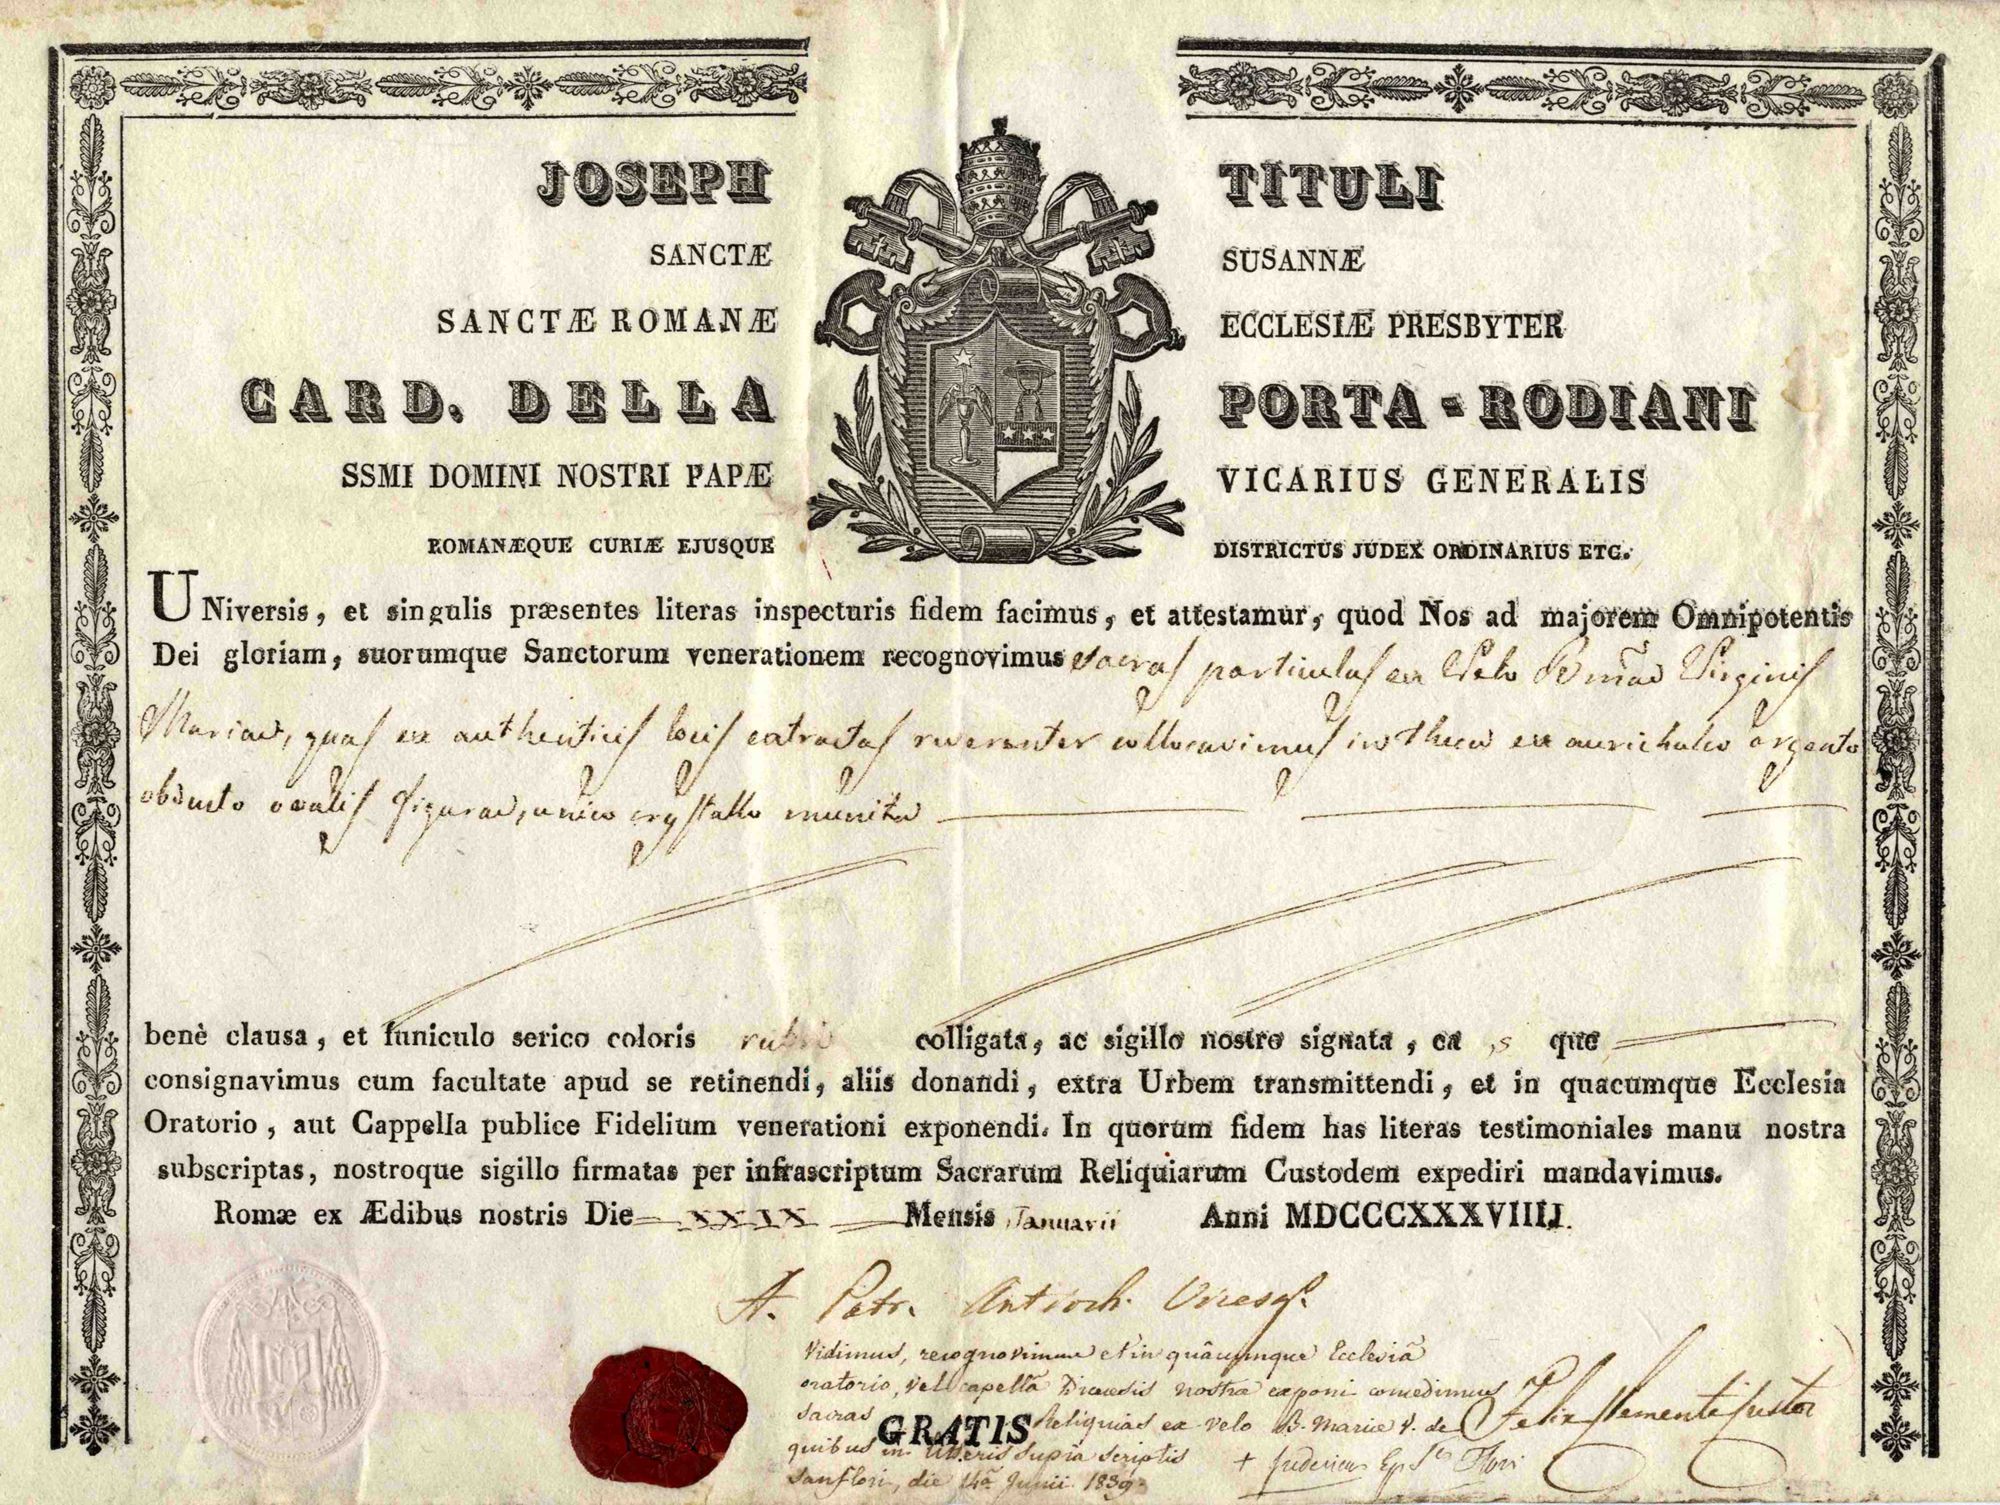 JOSEPH TITULI
SANCTÆ SUSANNÆ
SANCTÆ ROMANÆ ECCLESIÆ PRESBYTER
CARD. DELLA PORTA-RODIANI
SSMI DOMINI NOSTRI PAPÆ VICARIUS GENERALIS
ROMANÆQUE CURIÆ EJUSQUE DISTRICTUS JUDEX ORDINARIUS ETC.
UNiversis, et singulis præsentes literas inspecturis fidem facimus, et attestamur, quod Nos ad majorem Omnipotentis
Dei gloriam, suorumque Sanctorum venerationem recognovimus sacras particulas ex Velo Bmae Virginis
Mariae, quas ex authenticis locis extractas reverenter collocavimus in theca ex aurichalco argento
obducto ovalis figurae, unico crystallo munita
benè clausa, et funiculo serico coloris rubri colligata, ac sigillo nostro signata, ea,s que
consignavimus cum facultate apud se retinendi, aliis donandi, extra Urbem transmittendi, et in quacumque Ecclesia
Oratorio, aut Cappella publice Fidelium venerationi exponendi. In quorum fidem has literas testimoniales manu nostra
subscriptas, nostroque sigillo firmatas per infrascriptum Sacrarum Reliquiarum Custodem expediri mandavimus.
Romæ ex Ædibus nostris Die XXIX Mensis Januarii Anni MDCCCXXXVIIII.
A. Patr. Antioch. Vicesg.
Vidimus, recognovimus et in quâcumque Ecclesiâ
oratorio, vel capellâ Dioecesis nostra exponi concedimus
sacras Reliquias ex velo B. Mariae V. de
GRATIS
quibus in litteris supra scriptis
Sanflori, die 14â Junii 1839.
Felix Clementi Custos